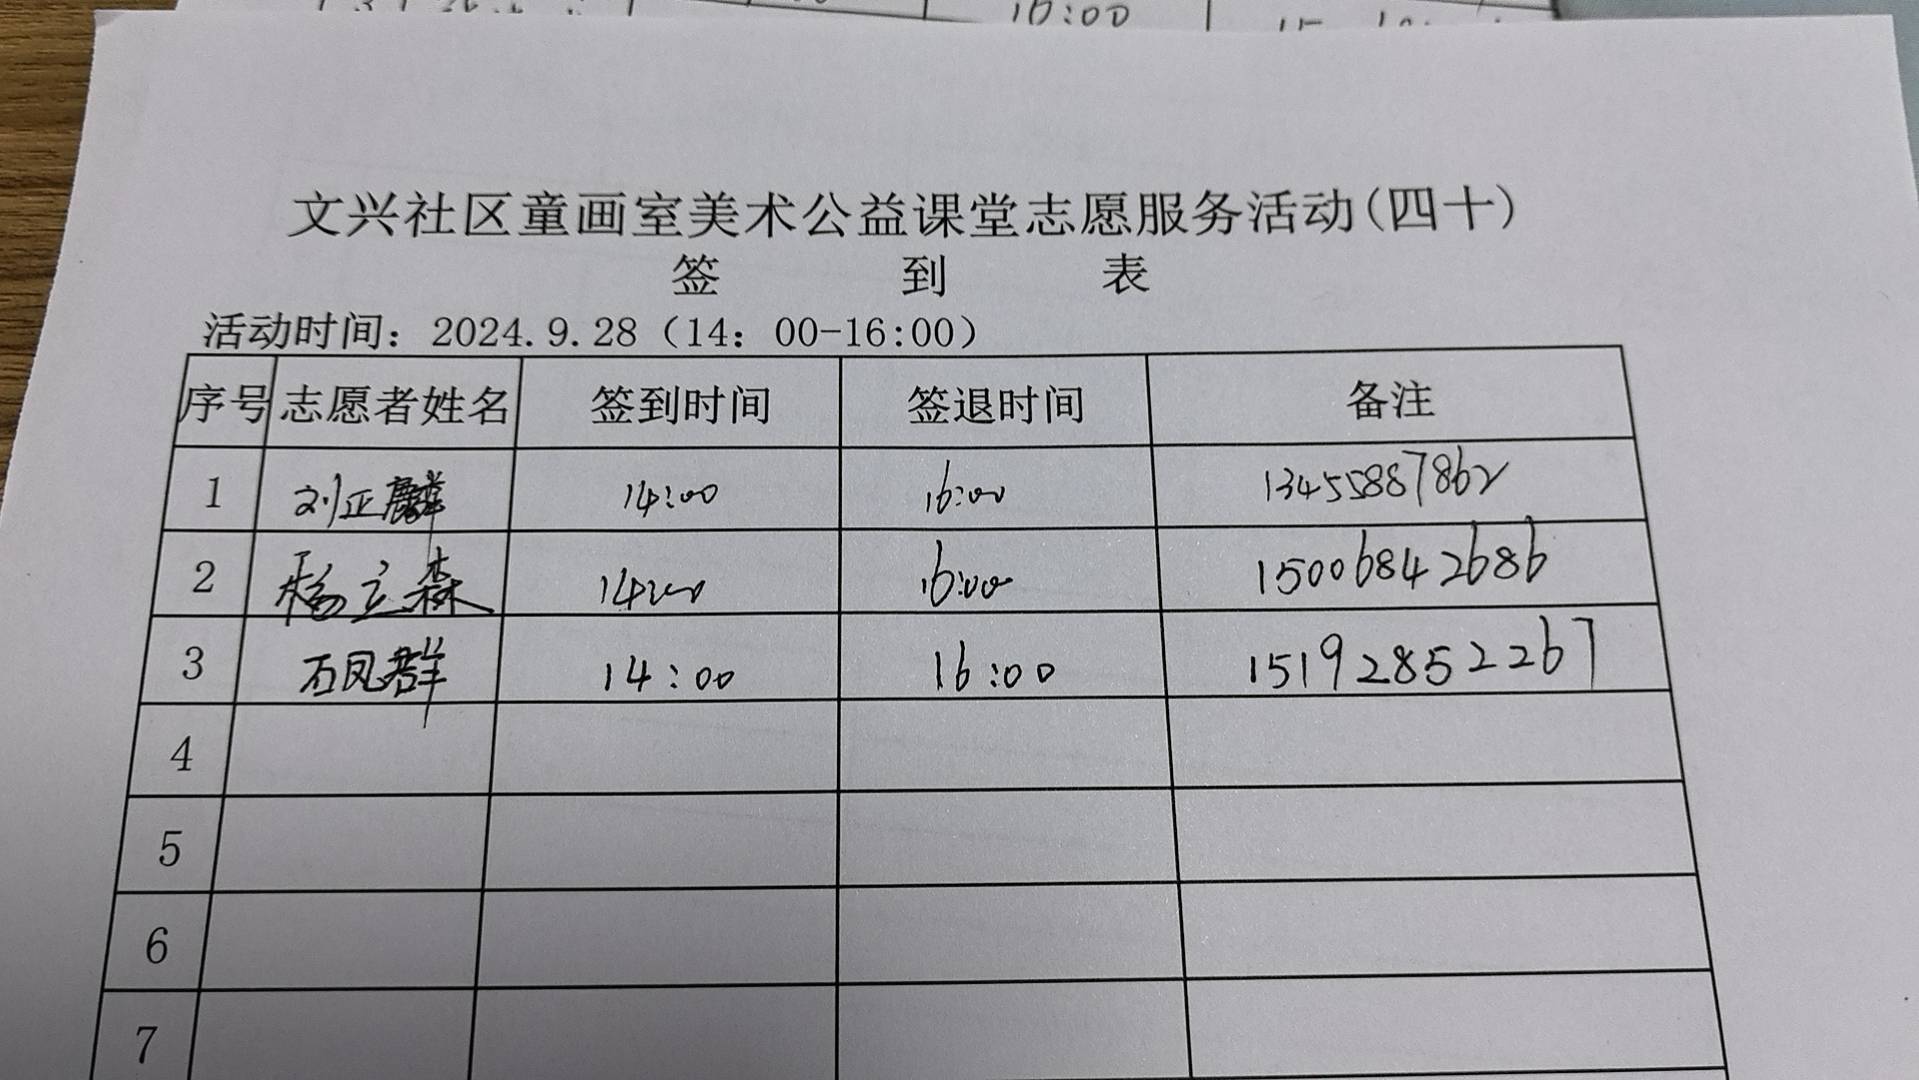 16:00
文兴社区童画室美术公益课堂志愿服务活动(四十)
签 到 表
活动时间: 2024.9.28 (14: 00-16:00)
序号 志愿者姓名 签到时间 签退时间 备注
1 刘正麟 14:00 16:00 13455887862
2 杨立森 14:00 16:00 15006842686
3 石凤群 14:00 16:00 15192852267
4
5
6
7